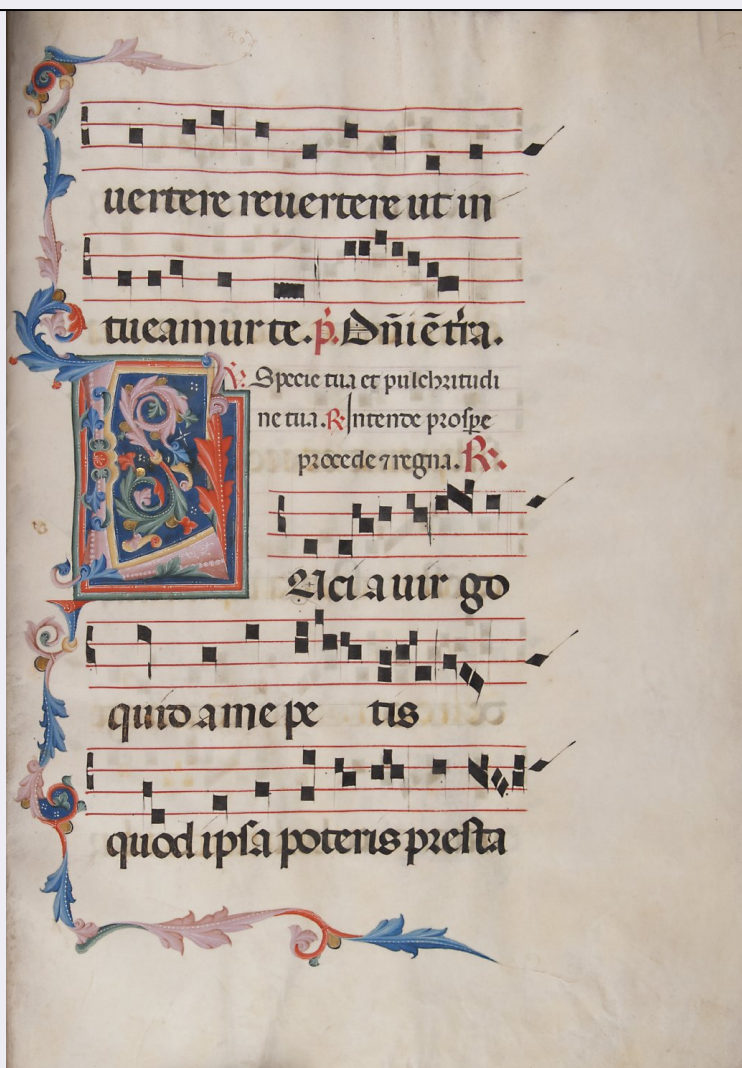 uertere reuertere ut in
tueamur te. p̃. Dñi ẽ t̃ra.
℣. Specie tua et pulchritudi
ne tua. ℟ Intende prospe
procede ⁊ regna. ℟.
LUci a uir go
quid a me pe tis
quod ipsa poteris presta